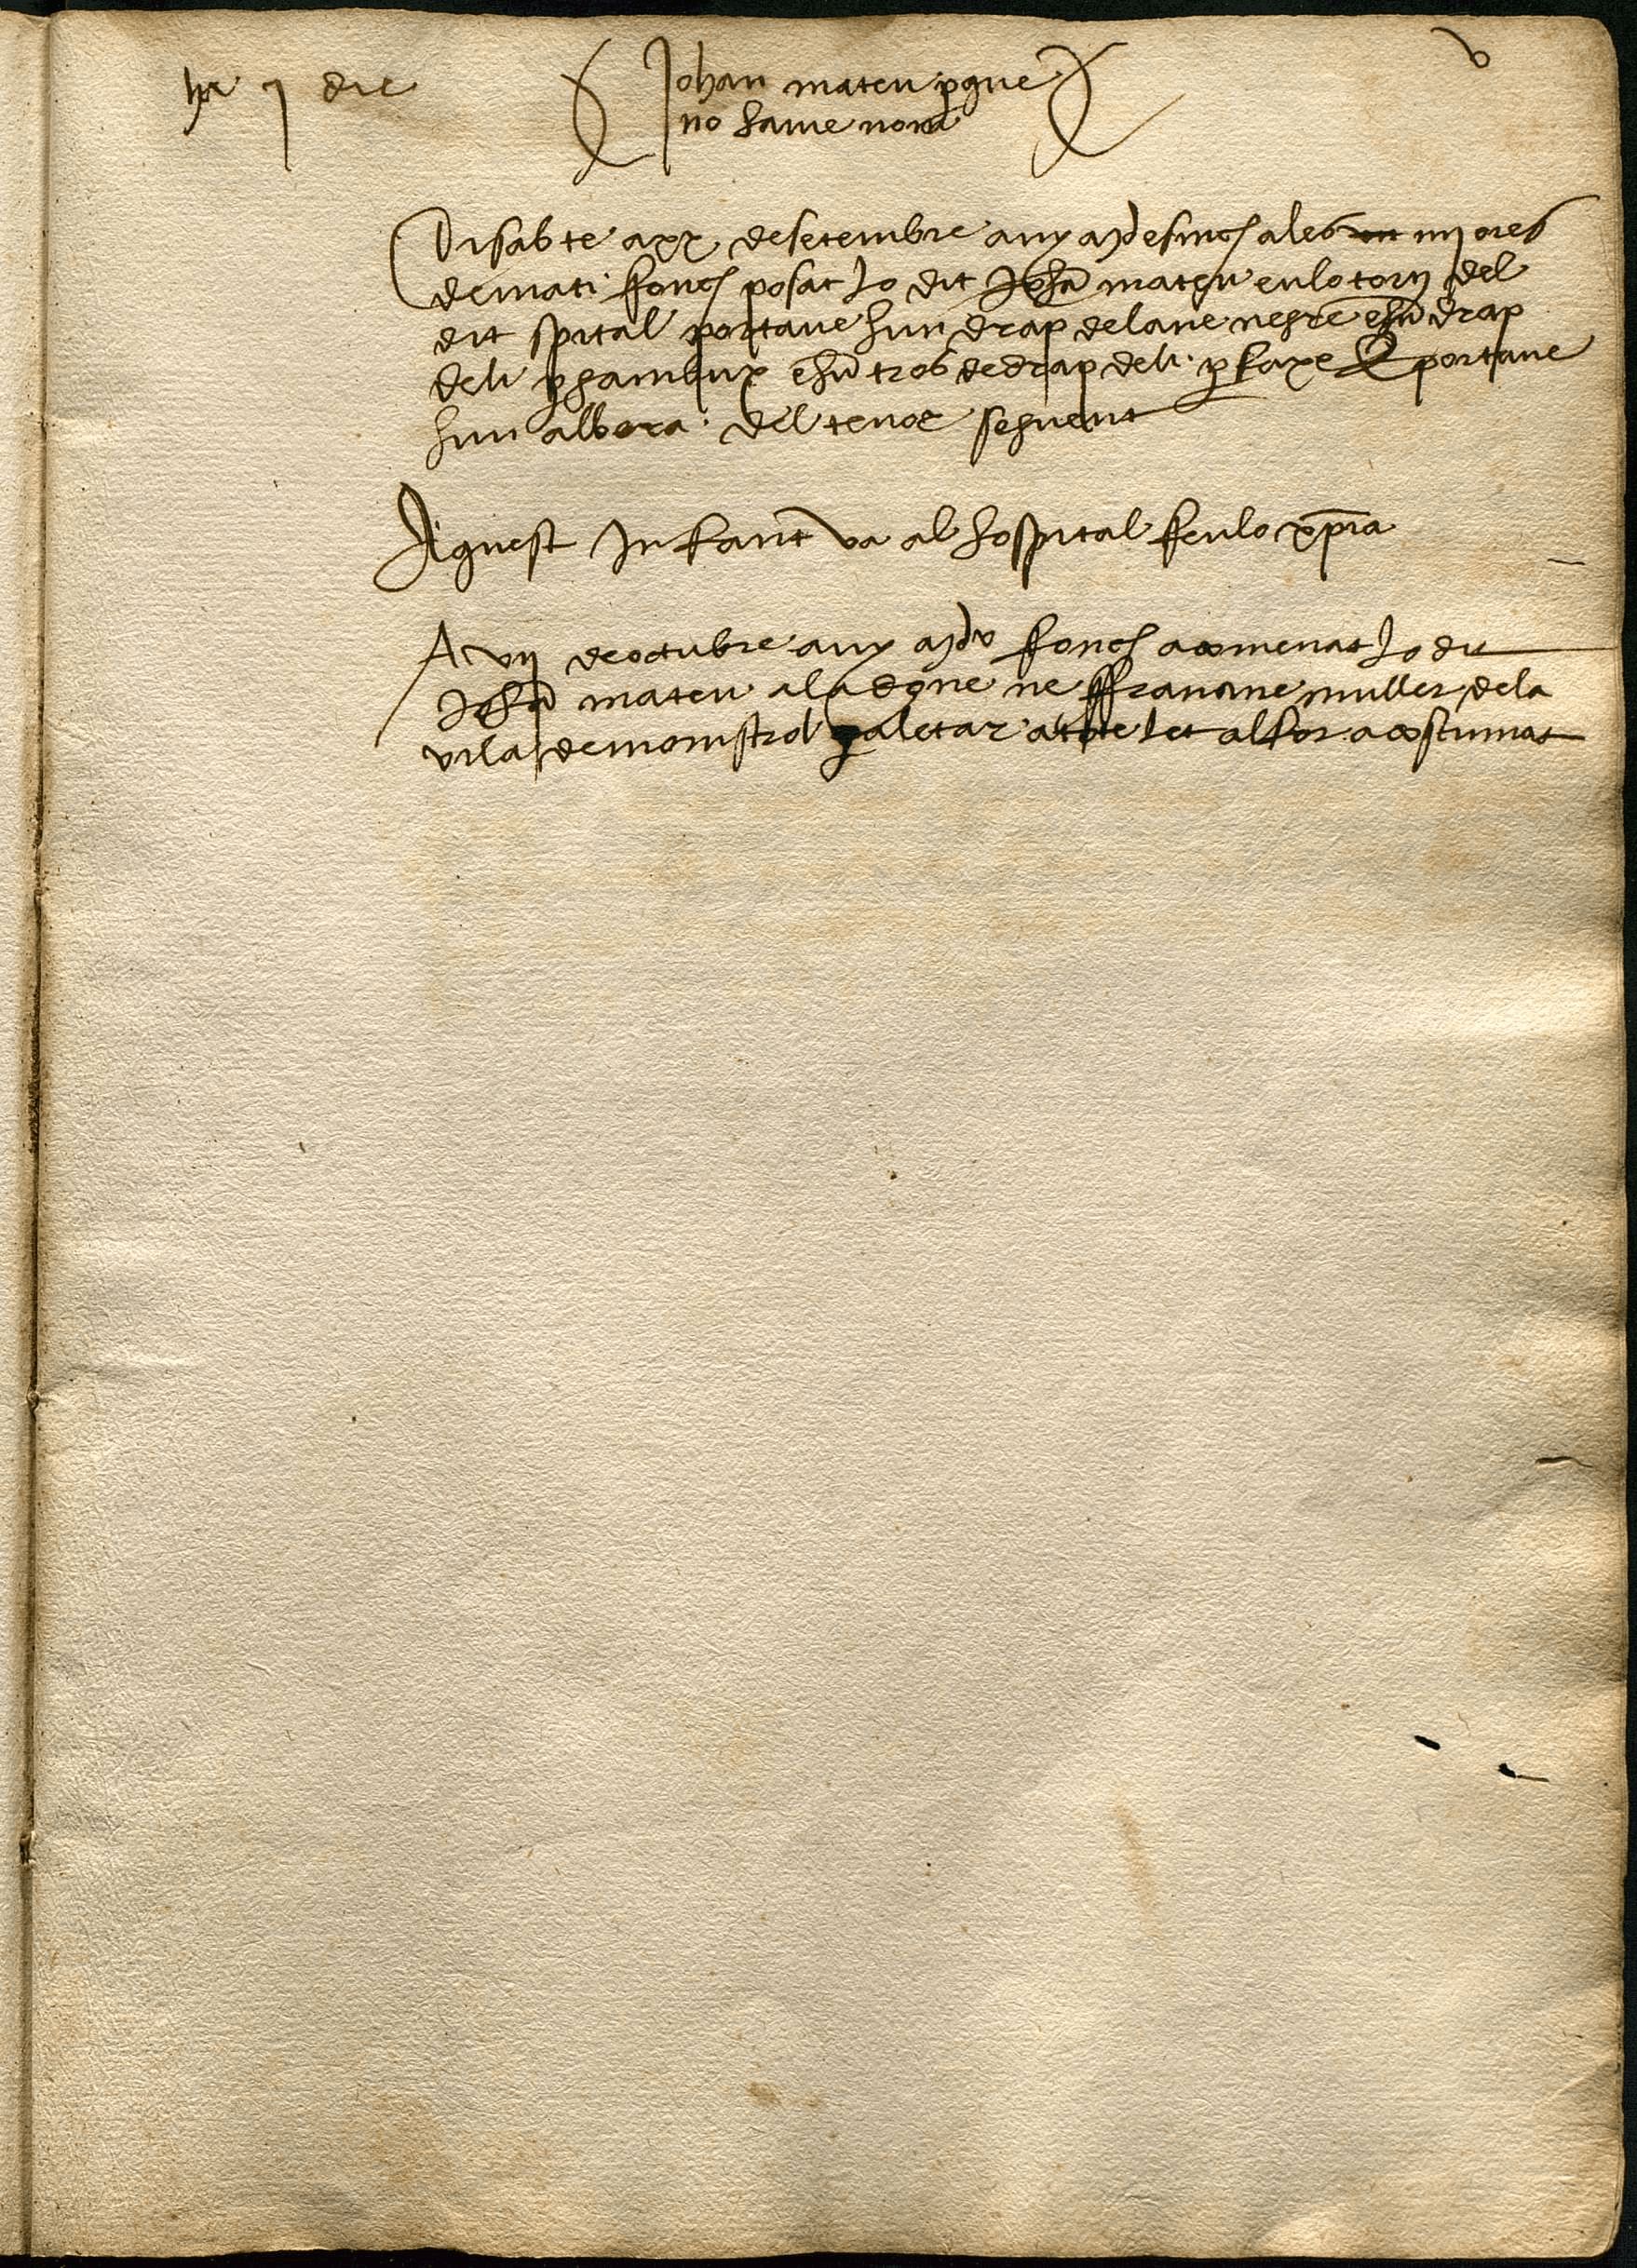 ha j die
Johan mateu perque
no havie nom
v
Disabte a xx de setembre any mdesinch ales iiij ores
demati fonch posat lo dit Johā mateu en lo torn del
dit spital portave hun drap de lane negre e hū drap
de li per gambux e hū tros de drap de li per faxe E portave
hun albara del tenor seguent
Aquest Infant va al hospital feulo xp̄ia
A vij de octubre any mdv fonch acomenat lo dit
Johā mateu a la done ne ffrancine muller de la
vila de monistrol per aletar a tote let al for acostumat